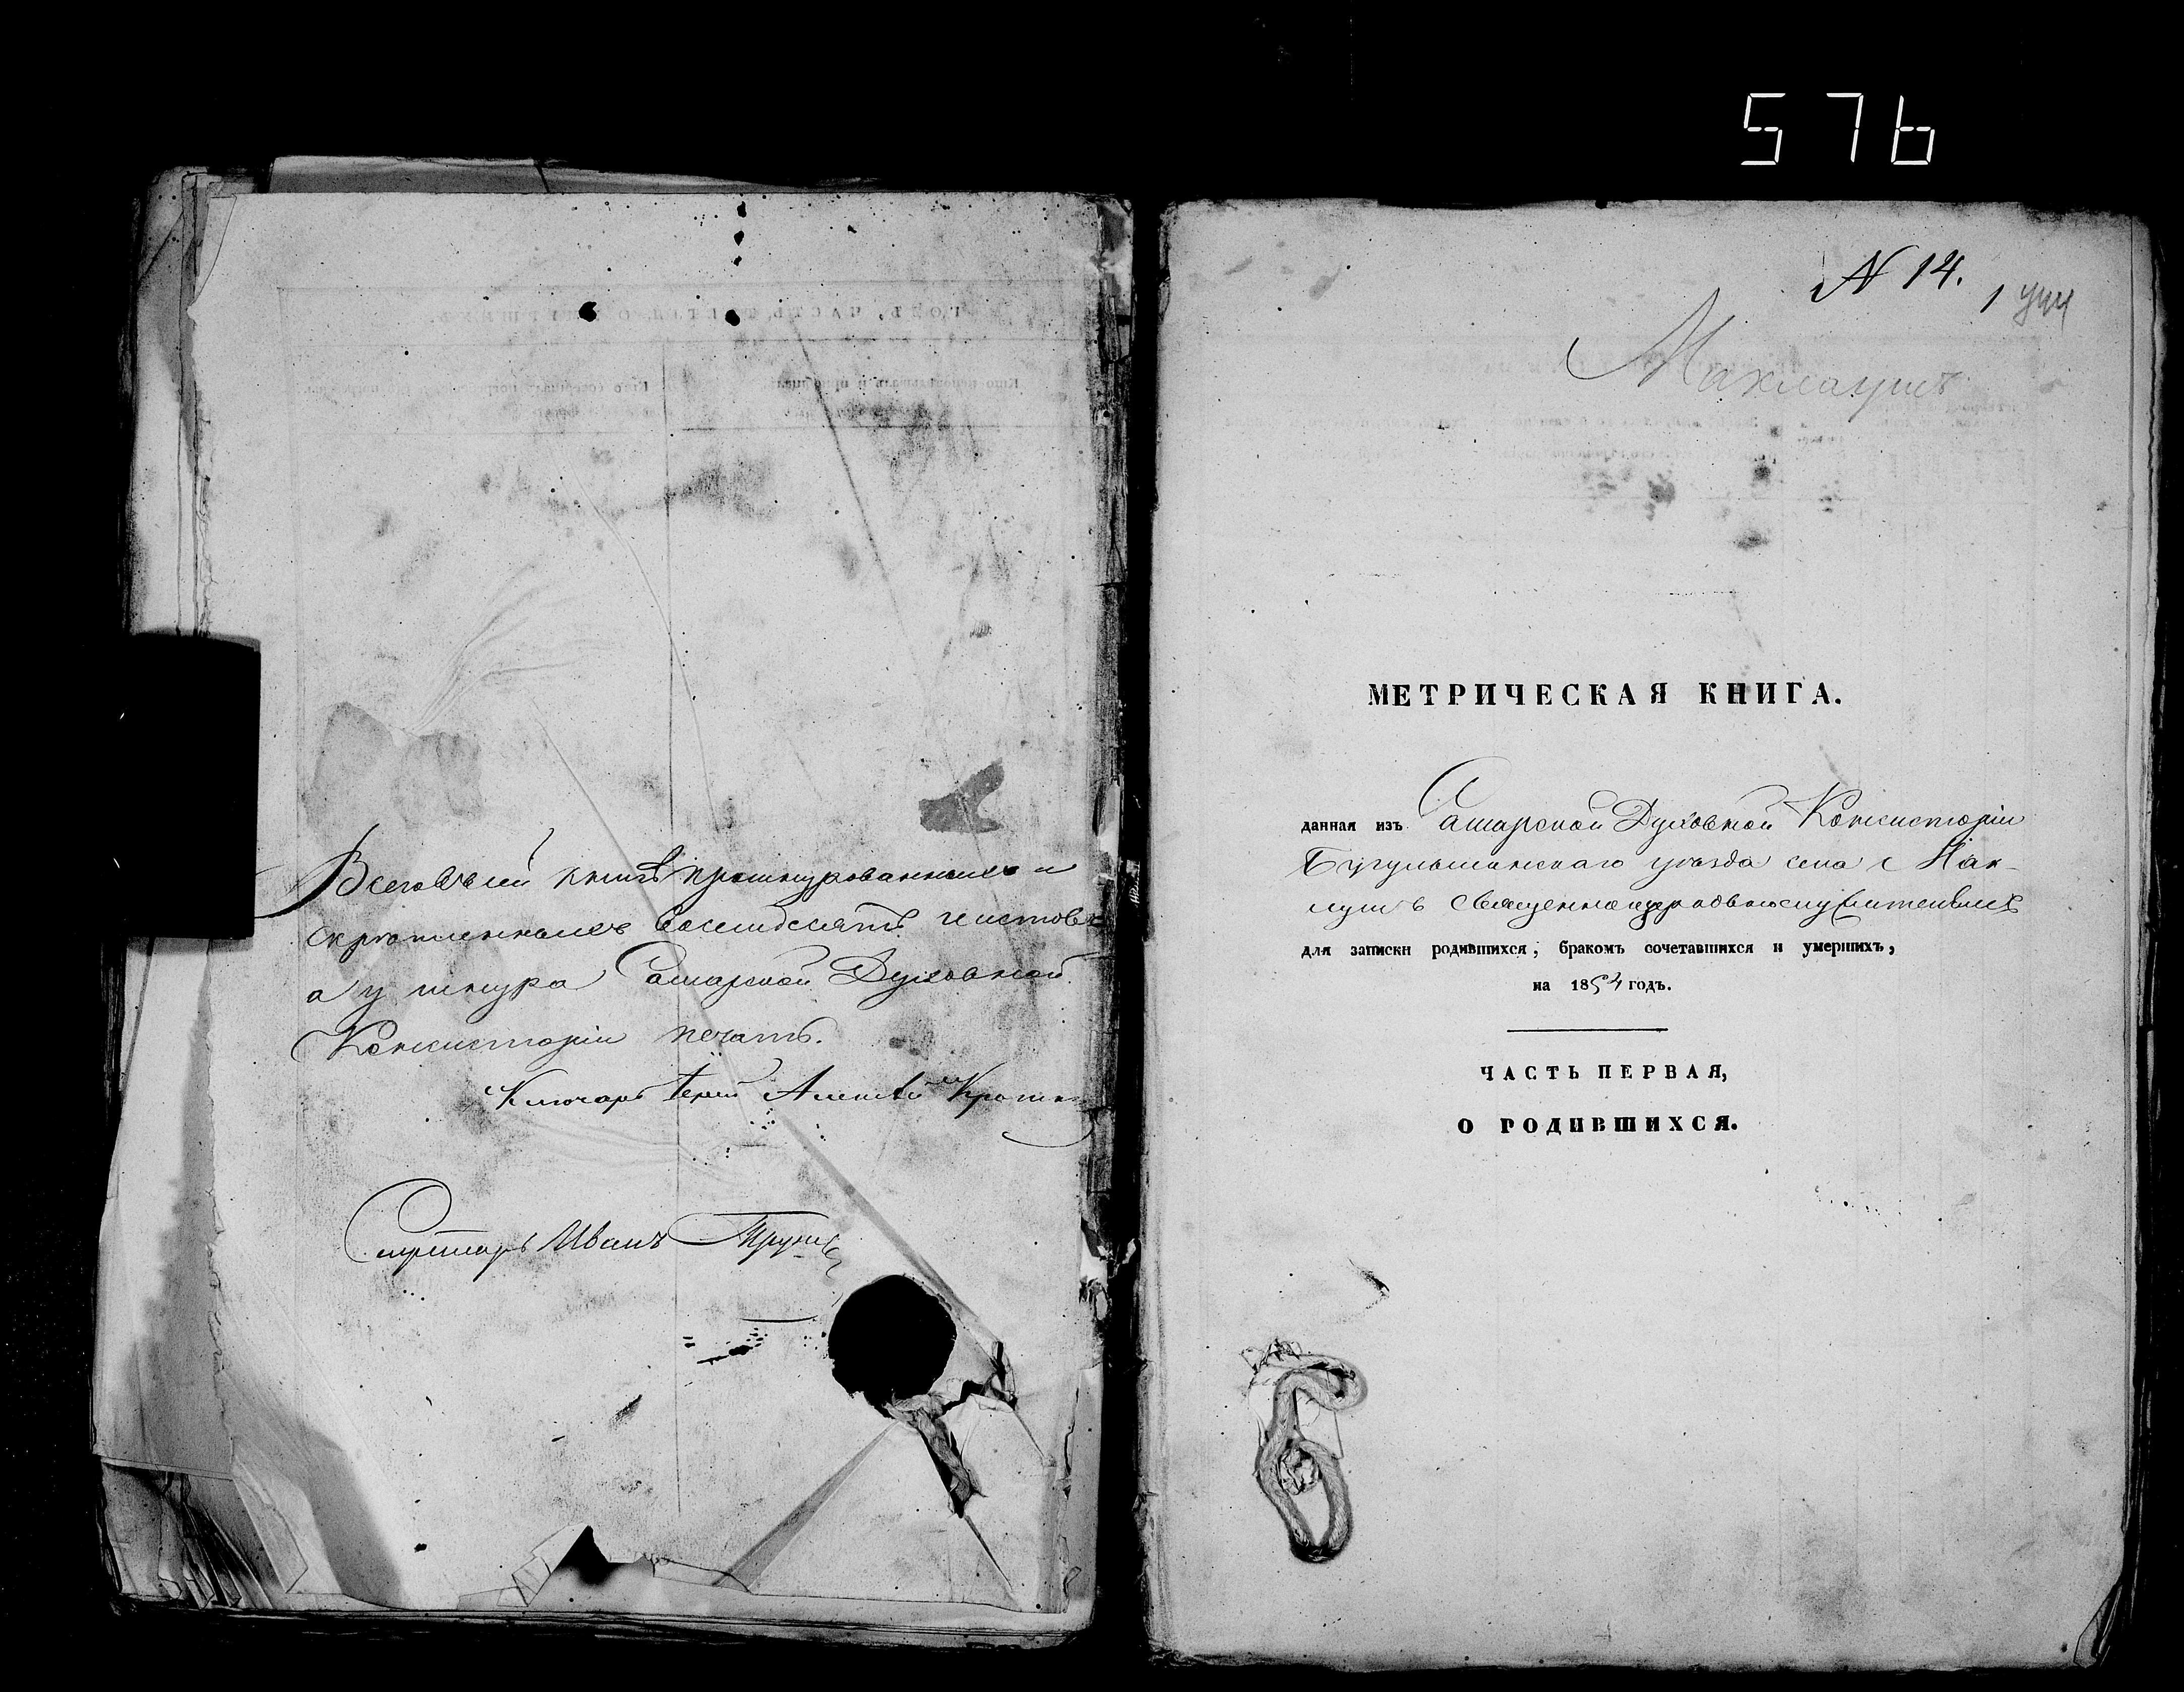 576
Всего въ сей книгѣ прошнурованныхъ и
скрѣпленныхъ восемьдесятъ листовъ
а у шнура Самарской Духовной
Консисторіи печать.
Ключарь Іерей Алексѣй
Секретарь Иванъ
N 14.
1 уч
Маклаушъ
МЕТРИЧЕСКАЯ КНИГА.
данная изъ Самарской Духовной Консисторіи
Бугульминскаго уѣзда села Мак-
лушъ священноцерковнослужителямъ
для записки родившихся, бракомъ сочетавшихся и умершихъ,
на 1854 годъ.
ЧАСТЬ ПЕРВАЯ,
О РОДИВШИХСЯ.